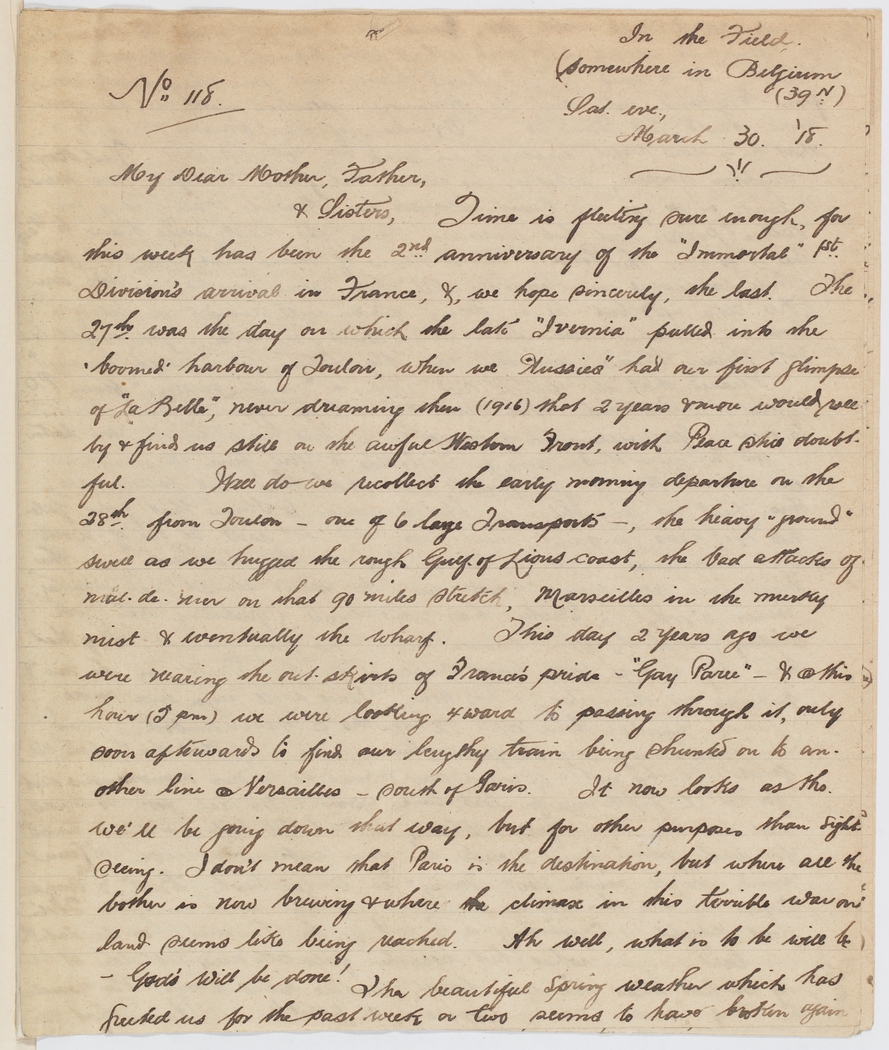 In the Field.
(somewhere in Belgium
(39 N)
No 118.
Sat. eve.,
March 30. '18.
My Dear Mother, Father,
& Sisters, Time is fleeting sure enough, for
this week has been the 2nd anniversary of the "Immortal" 1st
Division's arrival in France, &, we hope sincerely, the last. The
27th was the day on which the late "Ivernia" pulled into the
'boomed' harbour of Toulon, when we "Aussies" had our first glimpse
of "La Belle", never dreaming then (1916) that 2 years & more would roll
by & find us still on the awful Western Front, with Peace still doubt-
ful. Well do we recollect the early morning departure on the
28th from Toulon - one of 6 large Transports -, the heavy "ground"
swell as we hugged the rough Gulf of Lions coast, the bad attacks of
mal-de-mer on that 90 miles stretch, Marseilles in the murky
mist & eventually the wharf. This day 2 years ago we
were nearing the out-skirts of France's pride - "Gay Paree" - & @ this
hour (5 pm) we were looking 4ward to passing through it, only
soon afterwards to find our lengthy train being shunted on to an-
other line @ Versailles - south of Paris. It now looks as tho.
we'll be going down that way, but for other purposes than sight-
seeing. I don't mean that Paris is the destination, but where all the
bother is now brewing & where the climax in this terrible war on
land seems like being reached. Ah well, what is to be will be
- God's will be done! The beautiful Spring weather which has
greeted us for the past week or two seems to have broken again